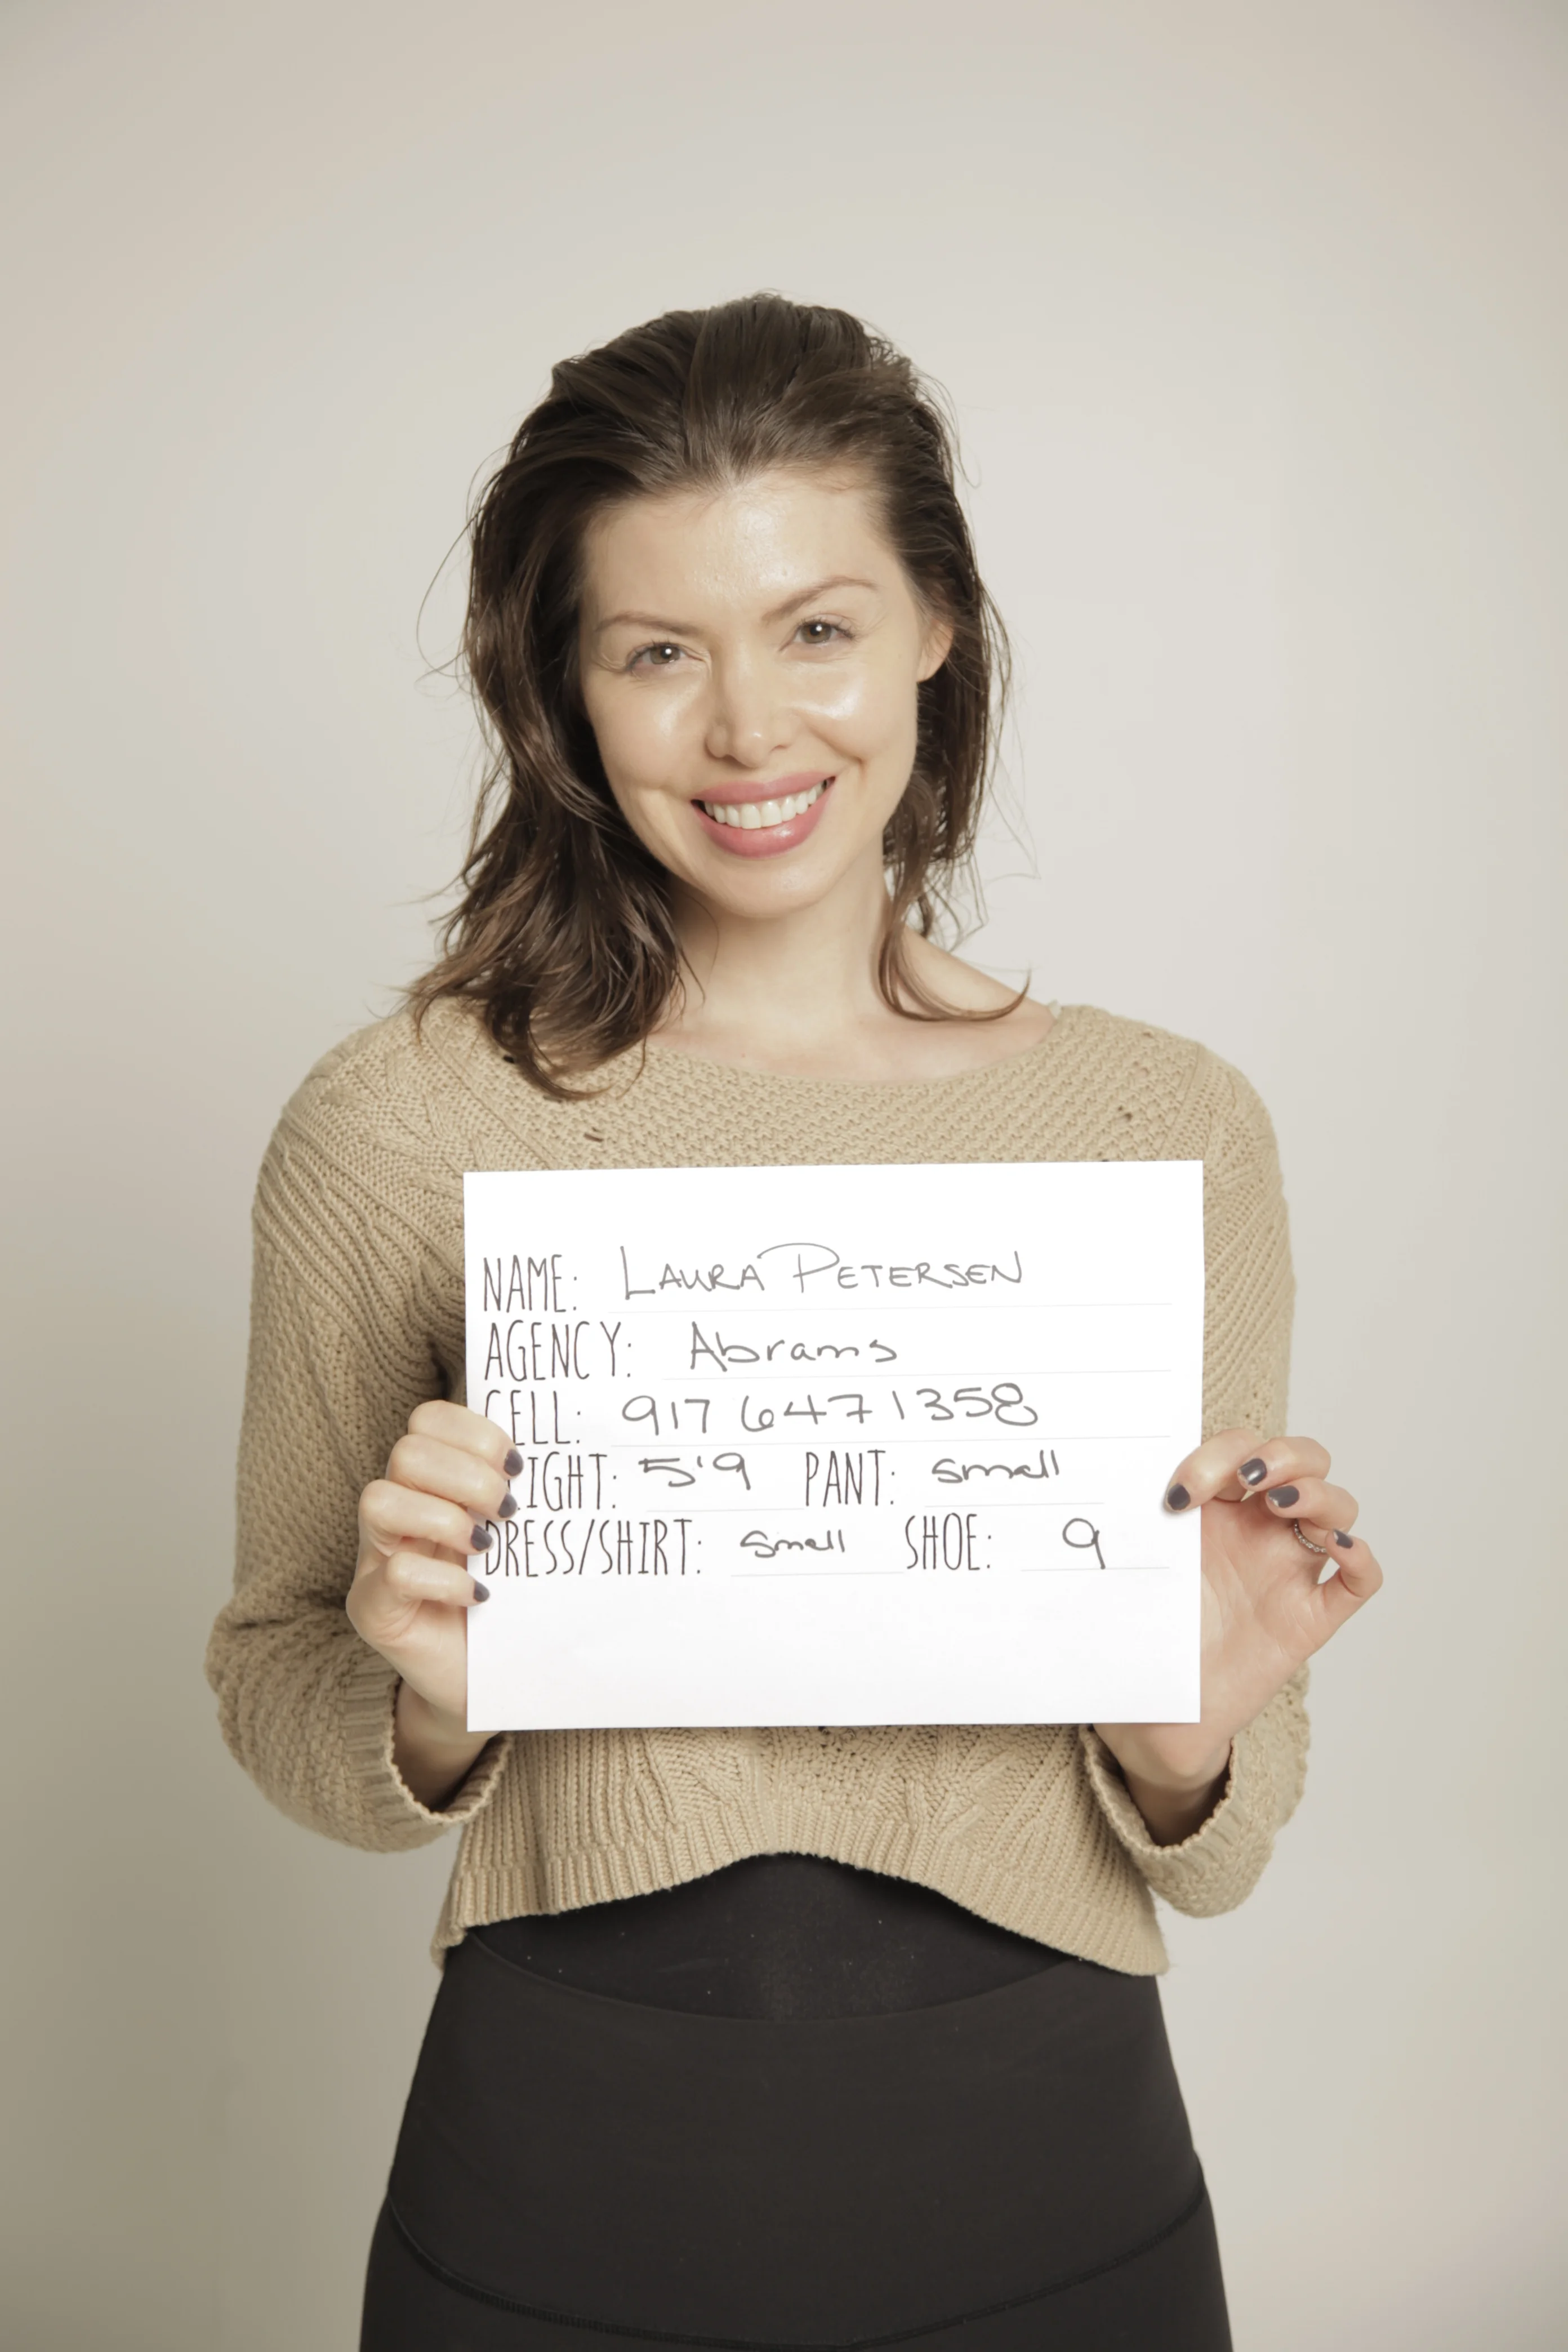 NAME: LAURA PETERSEN
AGENCY: Abrams
CELL: 917 647 1358
IGHT: 5'9 PANT: small
DRESS/SHIRT: small SHOE: 9